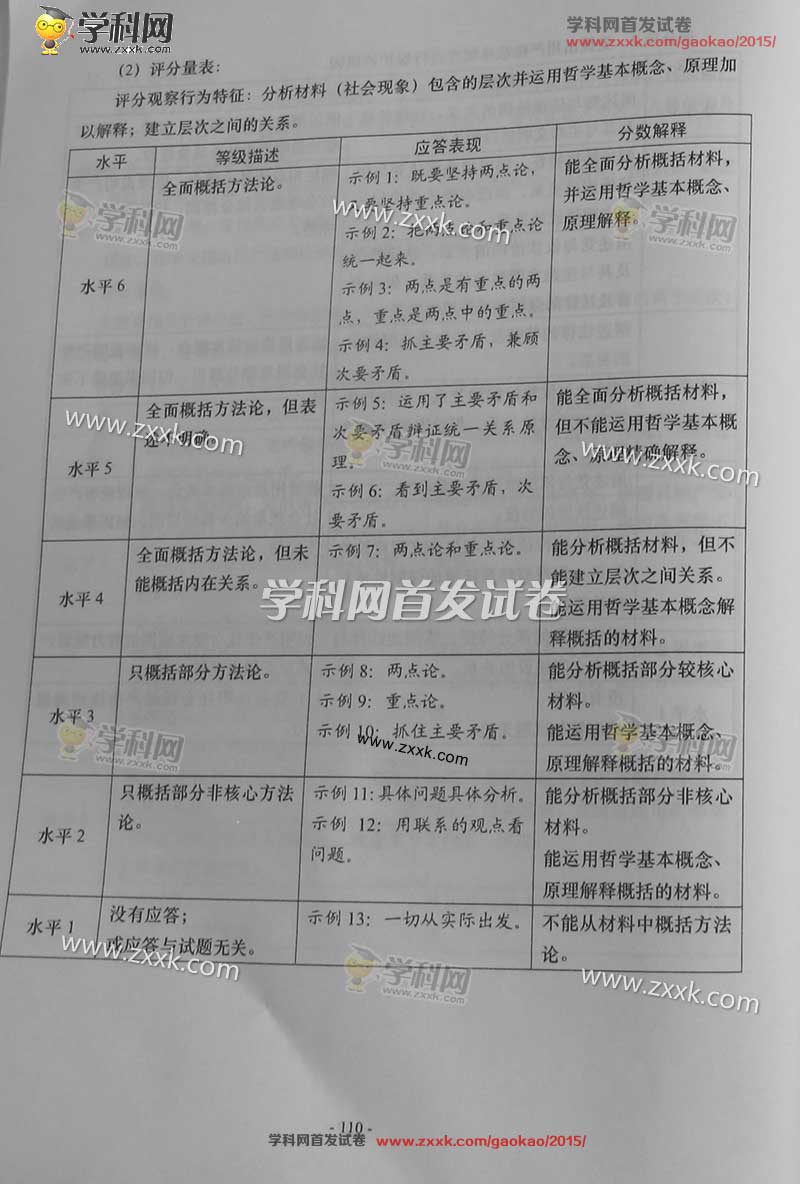 学科网
www.zxxk.com
学科网首发试卷
www.zxxk.com/gaokao/2015/
(2) 评分量表:
评分观察行为特征: 分析材料 (社会现象) 包含的层次并运用哲学基本概念、原理加
以解释; 建立层次之间的关系。
水平 等级描述 应答表现 分数解释
水平 6
全面概括方法论。
示例 1: 既要坚持两点论,
要坚持重点论。
示例 2: 把两点论和重点论
统一起来。
示例 3: 两点是有重点的两
点, 重点是两点中的重点。
示例 4: 抓主要矛盾, 兼顾
次要矛盾。
能全面分析概括材料,
并运用哲学基本概念、
原理解释。
学科网
www.zxxk.com
www.zxxk.com
学科网
www.zxxk.com
水平 5
全面概括方法论, 但表
述不明确
示例 5: 运用了主要矛盾和
次要矛盾辩证统一关系原
理。
示例 6: 看到主要矛盾, 次
要矛盾。
能全面分析概括材料,
但不能运用哲学基本概
念、原理精确解释。
www.zxxk.com
学科网
www.zxxk.com
www.zxxk.com
水平 4
全面概括方法论, 但未
能概括内在关系。
示例 7: 两点论和重点论。
能分析概括材料, 但不
能建立层次之间关系。
能运用哲学基本概念解
释概括的材料。
学科网首发试卷
水平 3
只概括部分方法论。
示例 8: 两点论。
示例 9: 重点论。
示例 10: 抓住主要矛盾。
能分析概括部分较核心
材料。
能运用哲学基本概念、
原理解释概括的材料。
学科网
www.zxxk.com
www.zxxk.com
学科网
www.zxxk.com
水平 2
只概括部分非核心方法
论。
示例 11: 具体问题具体分析。
示例 12: 用联系的观点看
问题。
能分析概括部分非核心
材料。
能运用哲学基本概念、
原理解释概括的材料。
水平 1
没有应答;
或应答与试题无关。
示例 13: 一切从实际出发。
不能从材料中概括方法
论。
www.zxxk.com
学科网
www.zxxk.com
www.zxxk.com
- 110 -
学科网首发试卷 www.zxxk.com/gaokao/2015/